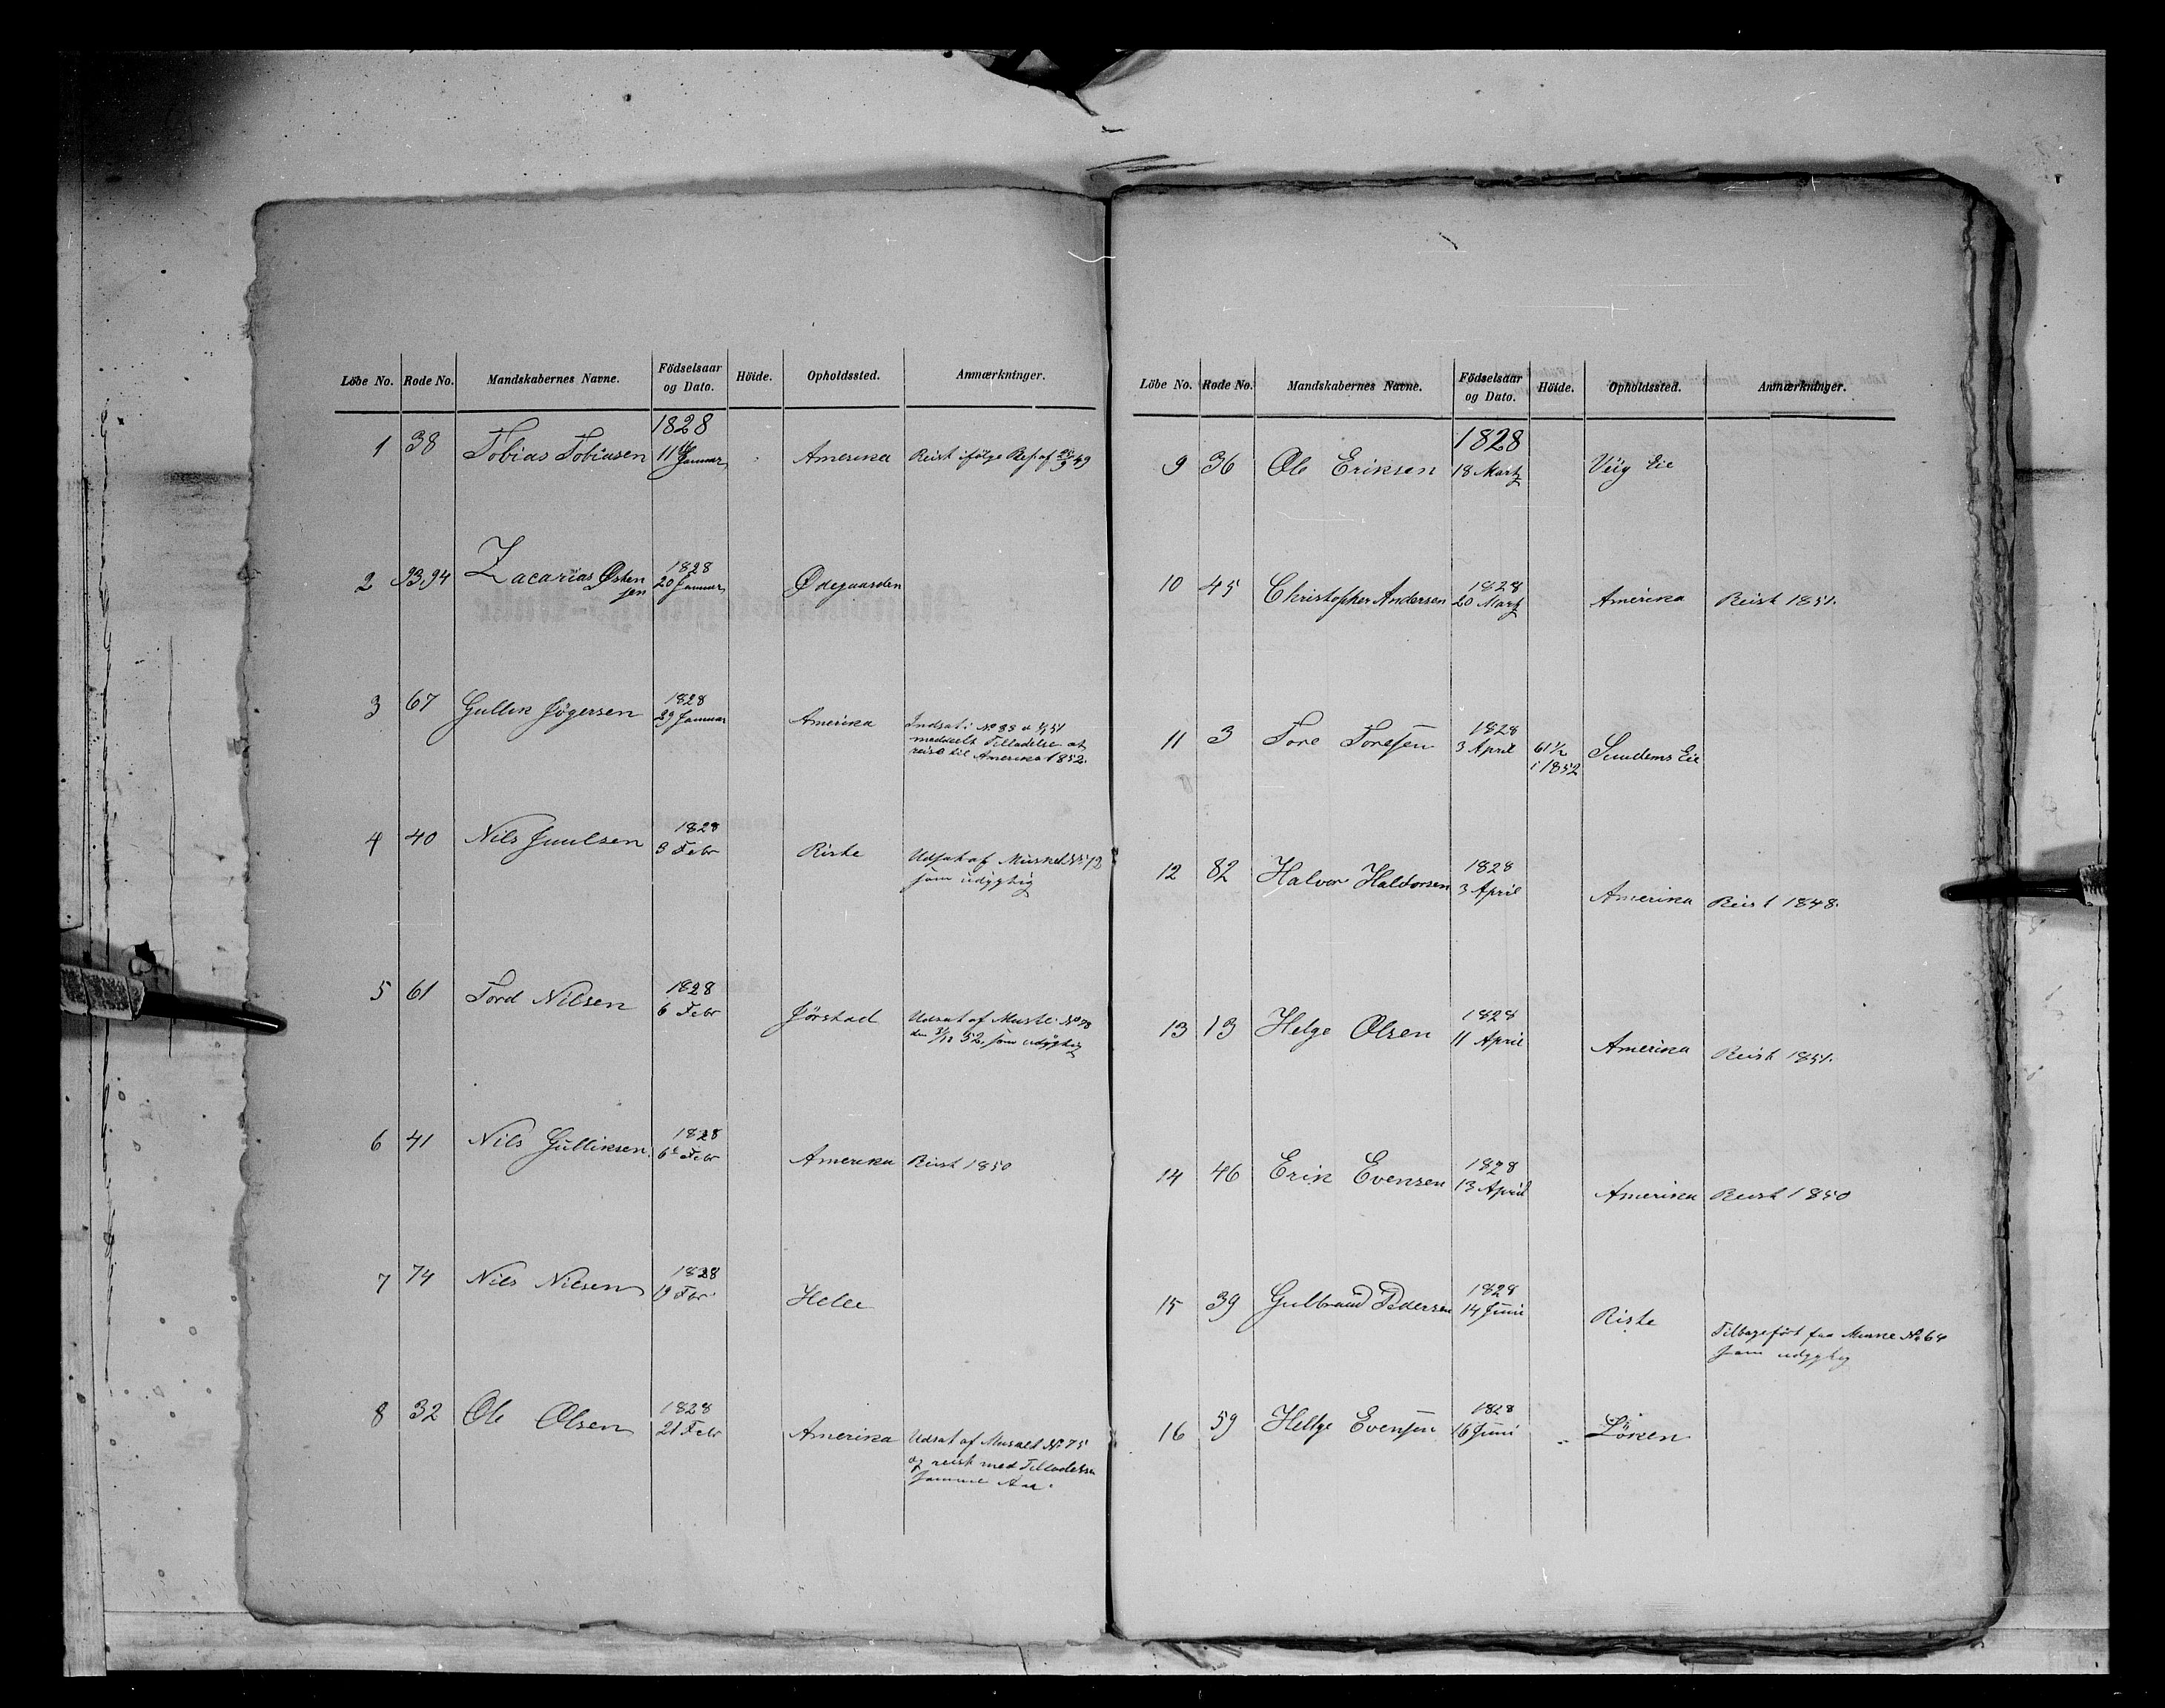 Löbe No. Rode No. Mandskabernes Navne. Födselsaar og Dato. Höide. Opholdssted. Anmærkninger.
1 38 Tobias Tobiasen 1828 11 Januar Amerika Reist ifölge Rep af 49
2 93,94 Zacarias Østen
sen 1828 20 Januar Ødegaarden
3 67 Gullik Jögersen 1828 29 Januar Amerika Indsat i No 38
meddeelt Tilladelse at
reise til Amerika 1852.
4 40 Nils Juulsen 1828 3 Febr Riste Udsat af Musket No 12
som udygtig
5 61 Tord Nilsen 1828 6 Febr Jörstad Udsat af Musk. No 78
den 52, som udygtig
6 41 Nils Gulliksen 1828 6 Febr Amerika Reist 1850
7 74 Nils Nilsen 1828 19 Fbr Helle
8 32 Ole Olsen 1828 21 Febr Amerika Udsat af Musket No 75
og reist med Tilladelse
samme Aar.
Löbe No. Rode No. Mandskabernes Navne. Födselsaar og Dato. Höide. Opholdssted. Anmærkninger.
9 36 Ole Eriksen 1828 18 Marts Veig Eie
10 45 Christopher Andersen 1828 20 Marts Amerika Reist 1851.
11 3 Tore Toresen 1828 3 April 61 1/2
i 1852 Sundems Eie
12 82 Halvor Haldorsen 1828 3 April Amerika Reist 1848.
13 13 Helge Olsen 1828 11 April Amerika Reist 1851.
14 46 Erik Evensen 1828 13 April Amerika Reist 1850
15 39 Gulbrand Pedersen 1828 14 Juni Riste Tilbageført fra Musket No 64
som udygtig
16 59 Hellge Evensen 1828 16 Juni Löken